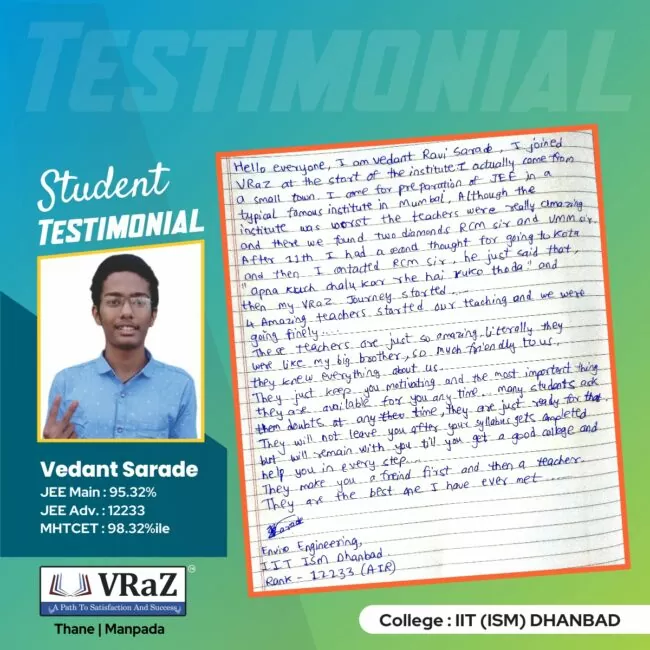 TESTIMONIAL
Student
TESTIMONIAL
Hello everyone, I am vedant Ravi Sarade, I joined
VRaZ at the start of the institute I actually come from
a small town. I came for preparation of JEE in a
typical famous institute in Mumbai, Although the
institute was worst the teachers were really amazing
and there we found two diamonds RCM sir and UMM sir.
After 11th I had a second thought for going to Kota
and then I contacted RCM sir, he just said that,
"apna kuch chalu kar rhe hai ruko thoda" and
then my VRaZ Journey started....
4 Amazing teachers started our teaching and we were
going finely....
These teachers are just so amazing. Literally they
were like my big brother, so much friendly to us.
they knew everything about us.
They just keep you motivating and the most important thing
they are available for you any time.. many students ask
then doubts at any time, they are just ready for that.
They will not leave you after your syllabus gets completed
but will remain with you till you get a good college and
help you in every step....
They make you a friend first and then a teacher.
They are the best one I have ever met....
Sarade
Enviro Engineering,
IIT ISM Dhanbad
Rank - 12233 (AIR)
Vedant Sarade
JEE Main : 95.32%
JEE Adv. : 12233
MHTCET : 98.32%ile
VRaZ
A Path To Satisfaction And Success
Thane | Manpada
College : IIT (ISM) DHANBAD